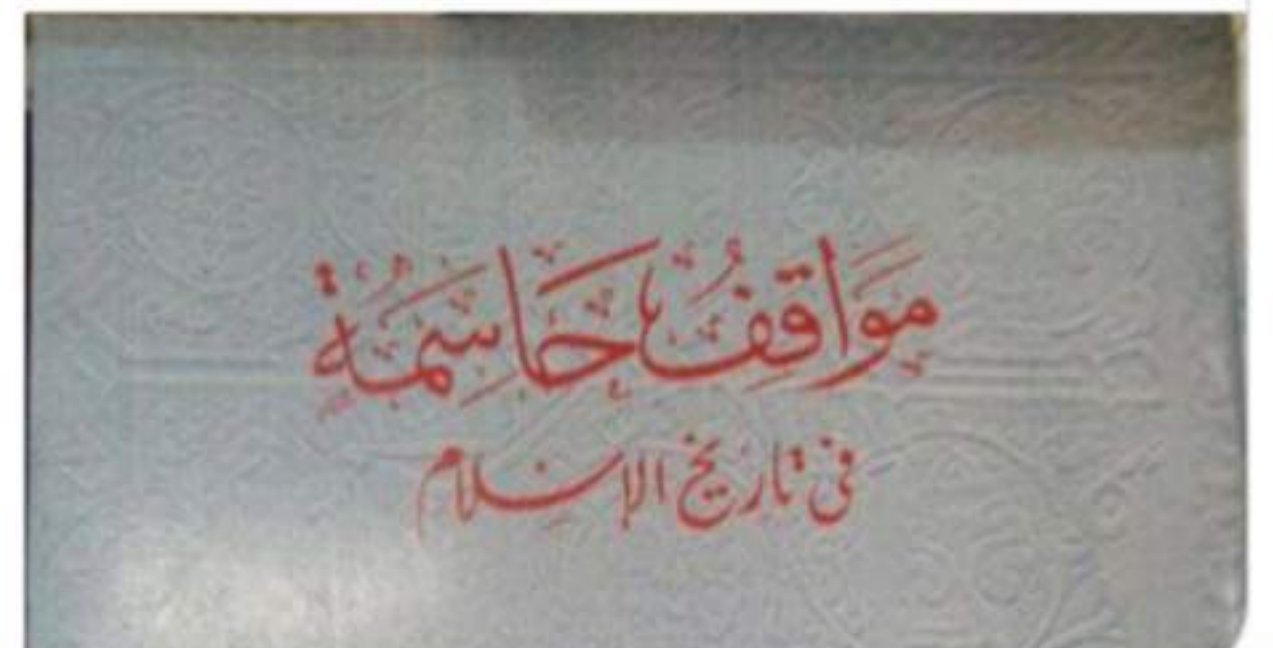 مَوَاقِفُ حَاسِمَةٌ
فى تاريخ الإسلام